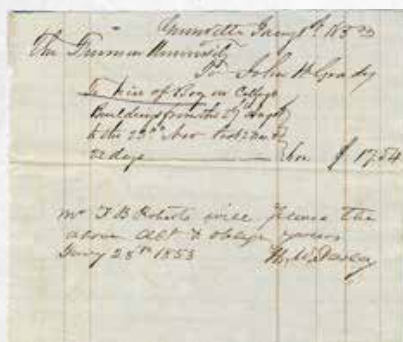 Greenville Jany 1st 1853
The Furman University
To John H Grady
To hire of Boy on College
Building from the 27th Augst
to the 23rd Nov
52 days $ 17.54
Mr F B Roberts will please the
above Act & oblige yours
Jany 28th 1853